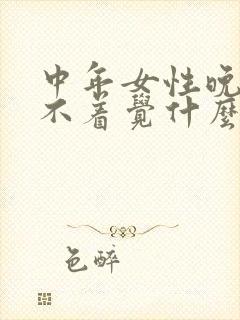 中年女性晚
不着覺什麼
色醉